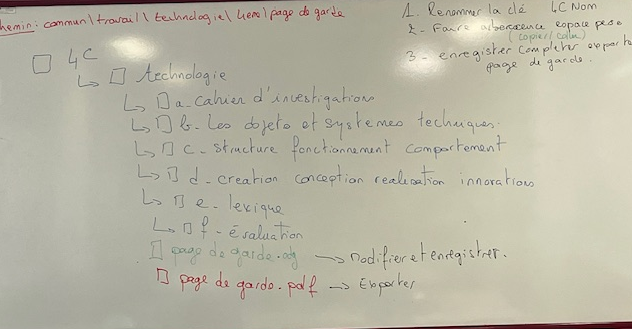 chemin: commun\travail\technologie\4eme\page de garde
1. Renommer la clé 4C Nom
2 - Faire arborescence espace perso
(copier/coller)
3 - enregistrer compléter exporter
page de garde.
4C
technologie
a - cahier d'investigations
b - Les objets et systèmes techniques.
c - structure fonctionnement comportement
d - creation conception realisation innovations
e - lexique
f - évaluation
page de garde.odg → Modifier et enregistrer.
page de garde.pdf → Exporter